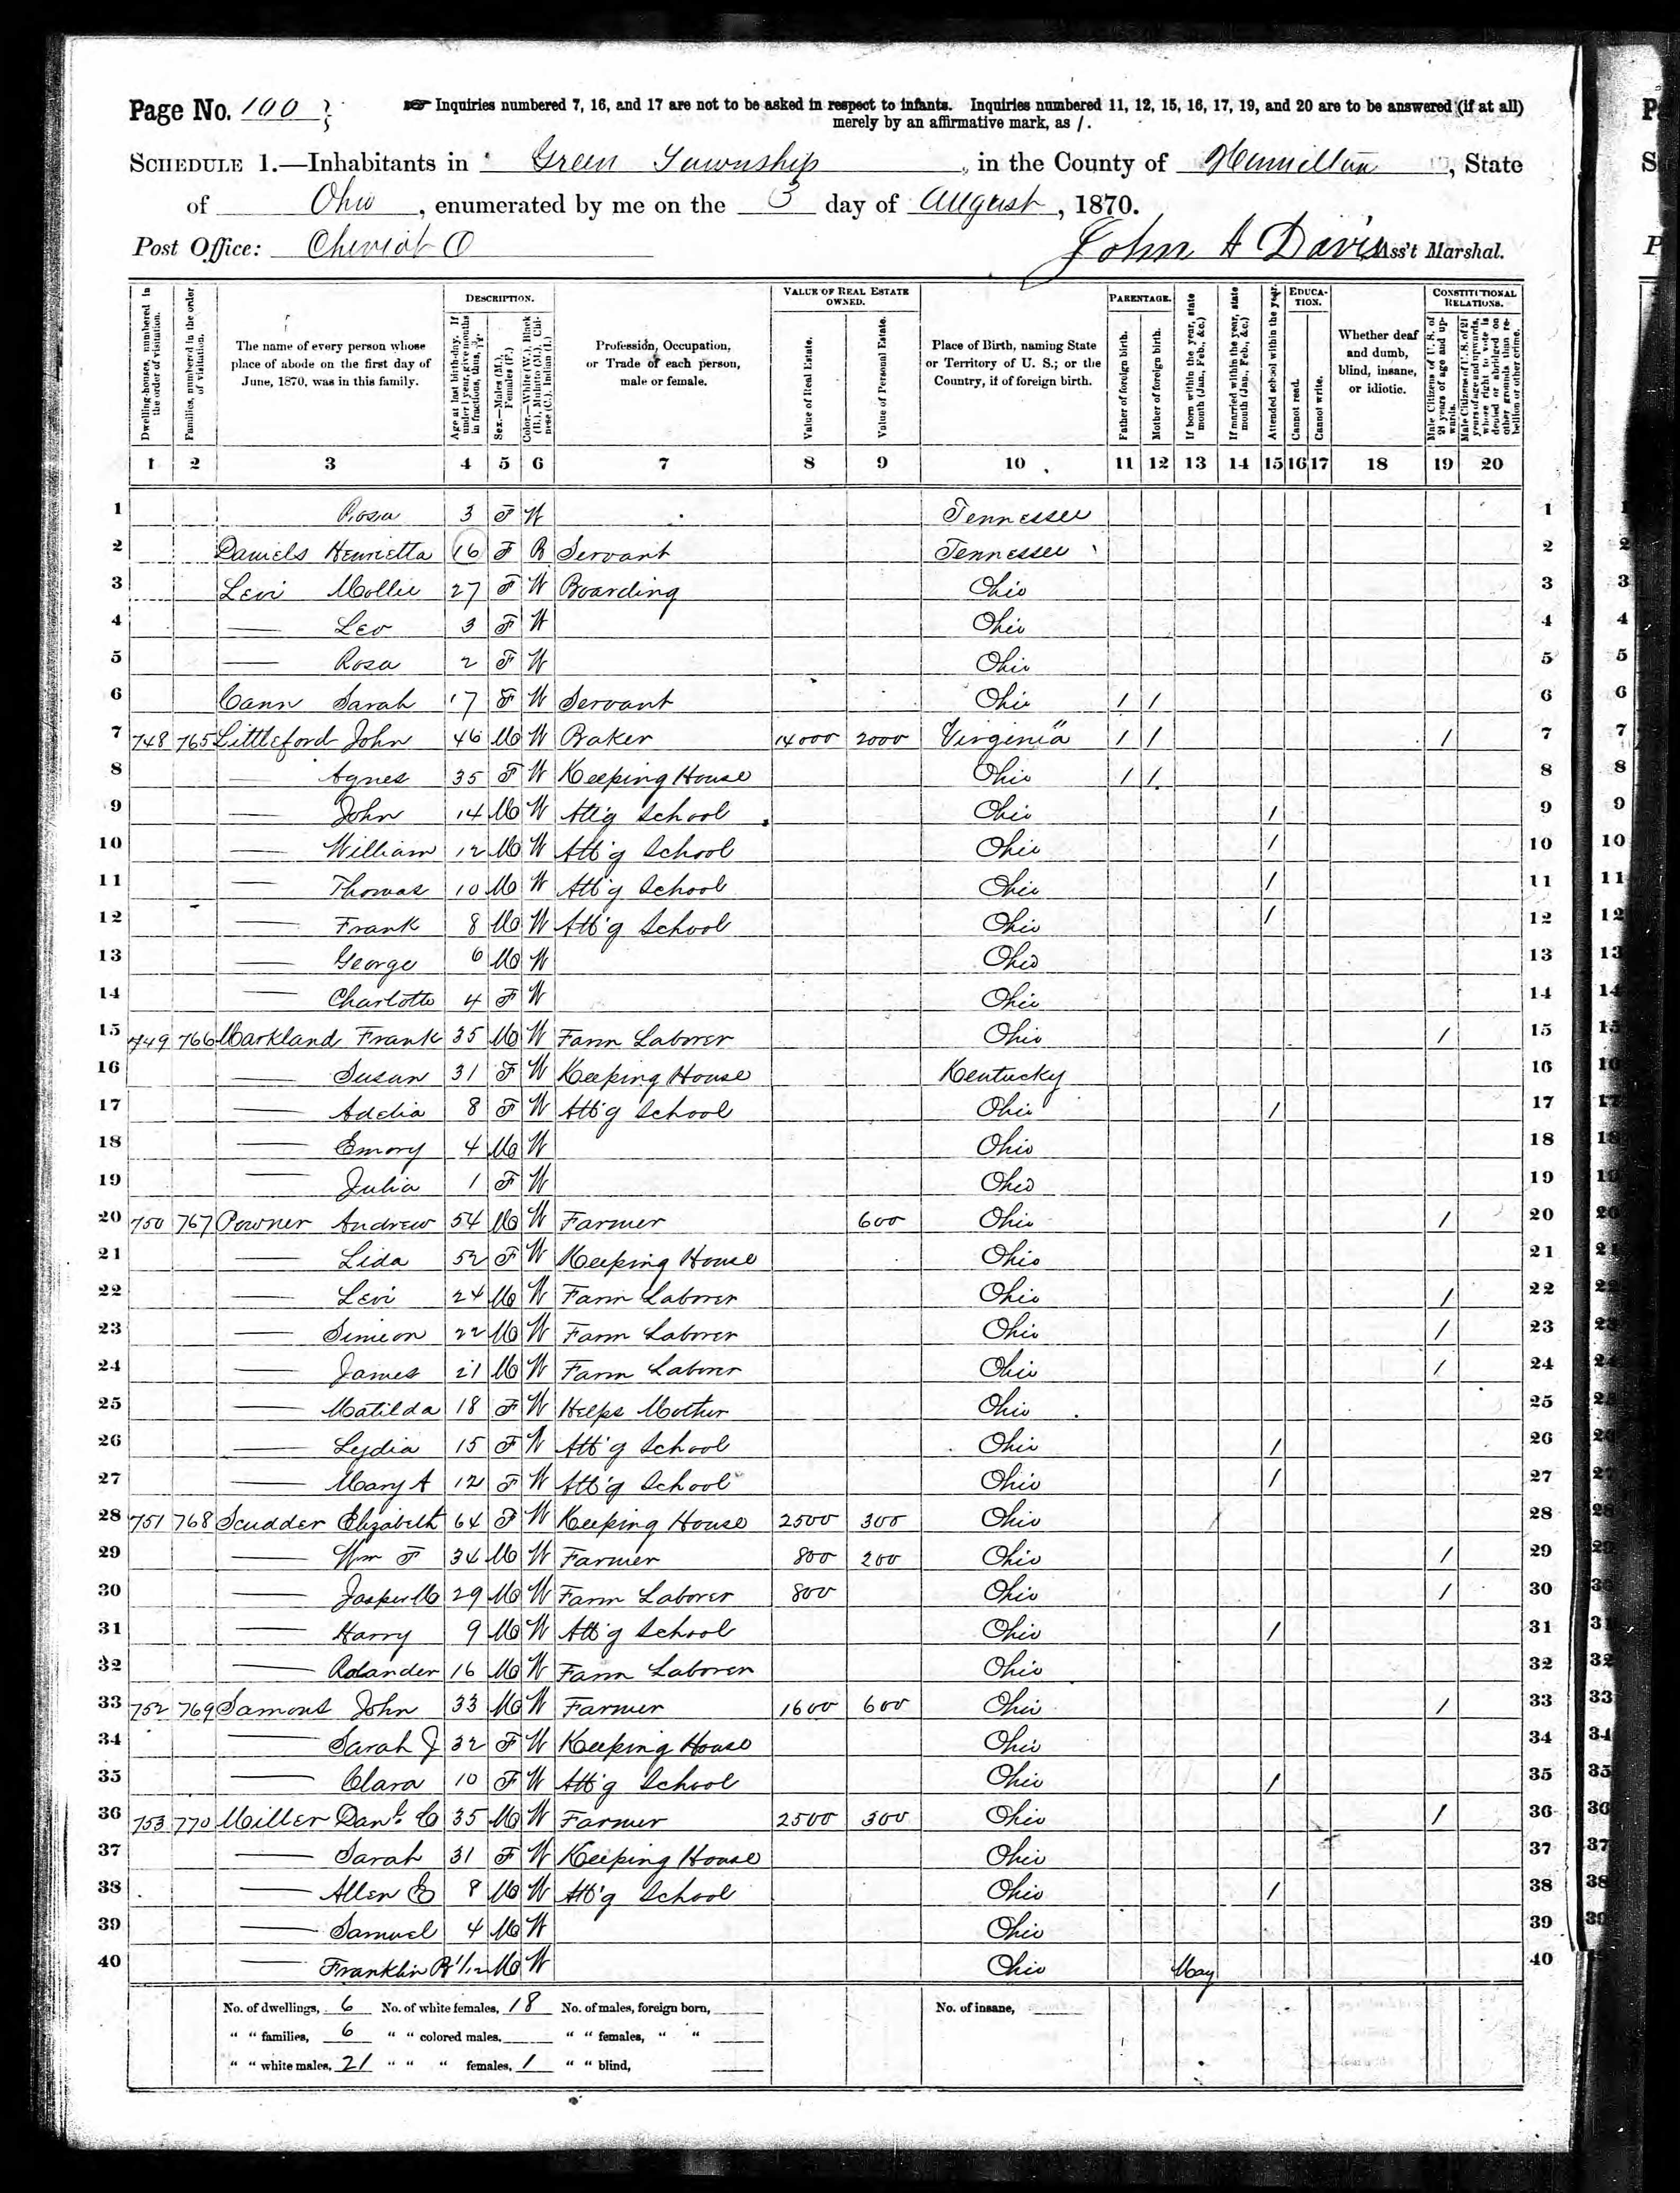 Page No. 100
Inquiries numbered 7, 16, and 17 are not to be asked in respect to infants. Inquiries numbered 11, 12, 15, 16, 17, 19, and 20 are to be answered (if at all)
merely by an affirmative mark, as /.
SCHEDULE 1.—Inhabitants in Green Township, in the County of Hamilton, State
of Ohio, enumerated by me on the 3 day of August, 1870.
Post Office: Cheviot O
John A Davis Ass't Marshal.
Dwelling-houses, numbered in the order of visitation.
Families, numbered in the order of visitation.
The name of every person whose place of abode on the first day of June, 1870, was in this family.
DESCRIPTION.
Age at last birth-day. If under 1 year, give months in fractions, thus, 3/12.
Sex.—Males (M.), Females (F.)
Color.—White (W.), Black (B.), Mulatto (M.), Chinese (C.), Indian (I.)
Profession, Occupation, or Trade of each person, male or female.
VALUE OF REAL ESTATE OWNED.
Value of Real Estate.
Value of Personal Estate.
Place of Birth, naming State or Territory of U. S.; or the Country, if of foreign birth.
PARENTAGE.
Father of foreign birth.
Mother of foreign birth.
If born within the year, state month (Jan., Feb., &c.)
If married within the year, state month (Jan., Feb., &c.)
Attended school within the year.
EDUCATION.
Cannot read.
Cannot write.
Whether deaf and dumb, blind, insane, or idiotic.
CONSTITUTIONAL RELATIONS.
Male Citizens of U. S. of 21 years of age and upwards.
Male Citizens of U. S. of 21 years of age and upwards, whose right to vote is denied or abridged on other grounds than rebellion or other crime.
1 2 3 4 5 6 7 8 9 10 11 12 13 14 15 16 17 18 19 20
1 Rosa 3 F W Tennessee 1
2 Daniels Henrietta 16 F B Servant Tennessee 2
3 Levi Mollie 27 F W Boarding Ohio 3
4 — Leo 3 F W Ohio 4
5 — Rosa 2 F W Ohio 5
6 Cann Sarah 17 F W Servant Ohio / / 6
7 748 765 Littleford John 46 M W Baker 14000 2000 Virginia / / / 7
8 — Agnes 35 F W Keeping House Ohio / / 8
9 — John 14 M W Att'g School Ohio / 9
10 — William 12 M W Att'g School Ohio / 10
11 — Thomas 10 M W Att'g School Ohio / 11
12 — Frank 8 M W Att'g School Ohio / 12
13 — George 6 M W Ohio 13
14 — Charlotte 4 F W Ohio 14
15 749 766 Markland Frank 35 M W Farm Laborer Ohio / 15
16 — Susan 31 F W Keeping House Kentucky 16
17 — Adelia 8 F W Att'g School Ohio / 17
18 — Emory 4 M W Ohio 18
19 — Julia 1 F W Ohio 19
20 750 767 Powner Andrew 54 M W Farmer 600 Ohio / 20
21 — Lida 52 F W Keeping House Ohio 21
22 — Levi 24 M W Farm Laborer Ohio / 22
23 — Simeon 22 M W Farm Laborer Ohio / 23
24 — James 21 M W Farm Laborer Ohio / 24
25 — Matilda 18 F W Helps Mother Ohio 25
26 — Lydia 15 F W Att'g School Ohio / 26
27 — Mary A 12 F W Att'g School Ohio / 27
28 751 768 Scudder Elizabeth 64 F W Keeping House 2500 300 Ohio 28
29 — Wm F 34 M W Farmer 800 200 Ohio / 29
30 — Jasper M 29 M W Farm Laborer 800 Ohio / 30
31 — Harry 9 M W Att'g School Ohio / 31
32 — Rolander 16 M W Farm Laborer Ohio 32
33 752 769 Samons John 33 M W Farmer 1600 600 Ohio / 33
34 — Sarah J 32 F W Keeping House Ohio 34
35 — Clara 10 F W Att'g School Ohio / 35
36 753 770 Miller Danl. C 35 M W Farmer 2500 300 Ohio / 36
37 — Sarah 31 F W Keeping House Ohio 37
38 — Allen E 8 M W Att'g School Ohio / 38
39 — Samuel 4 M W Ohio 39
40 — Franklin B 1/12 M W Ohio May 40
No. of dwellings, 6 No. of white females, 18 No. of males, foreign born, No. of insane,
" " families, 6 " " colored males, " " females, " "
" " white males, 21 " " " females, 1 " " blind,